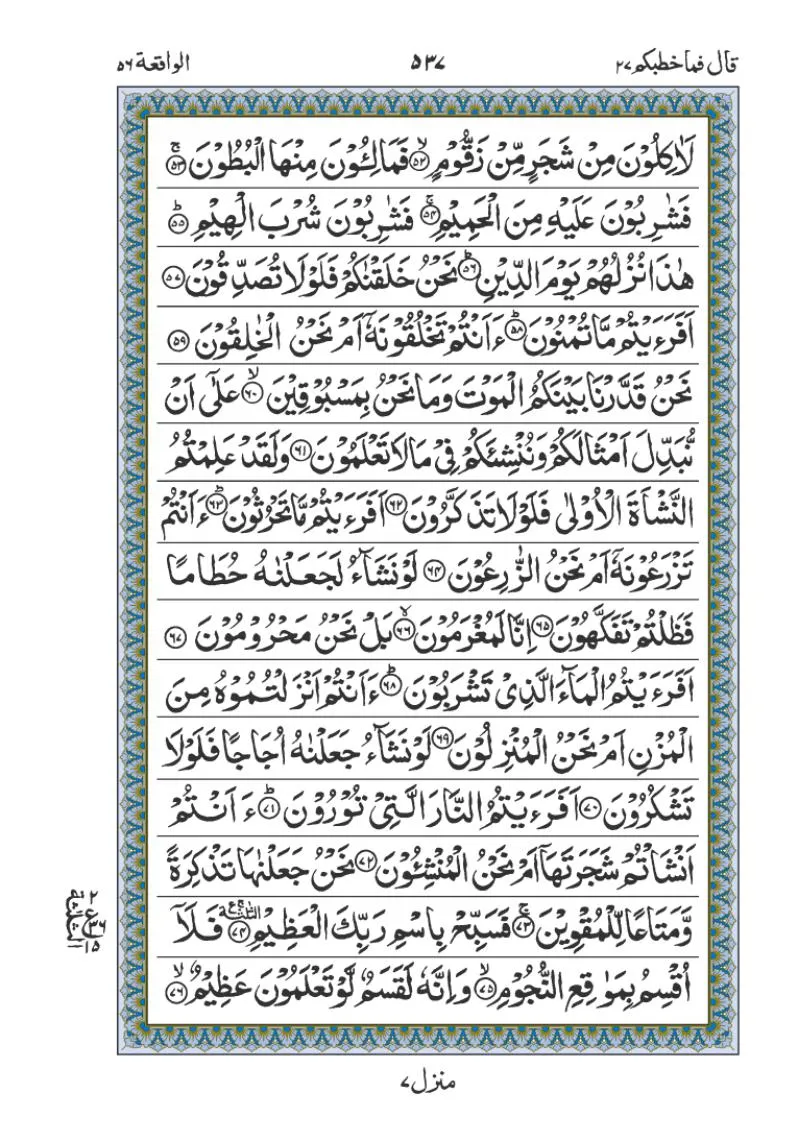 قال فما خطبكم ٢٧ ٥٣٧ الواقعة ٥٦
لَاٰكِلُوْنَ مِنْ شَجَرٍ مِّنْ زَقُّوْمٍۙ‏ ﴿۵۲﴾ فَمَالِـُٔوْنَ مِنْهَا الْبُطُوْنَۚ ﴿۵۳﴾
فَشٰرِبُوْنَ عَلَيْهِ مِنَ الْحَمِيْمِۚ ﴿۵۴﴾ فَشٰرِبُوْنَ شُرْبَ الْهِيْمِؕ ﴿۵۵﴾
هٰذَا نُزُلُهُمْ يَوْمَ الدِّيْنِؕ ﴿۵۶﴾ نَحْنُ خَلَقْنٰكُمْ فَلَوْلَا تُصَدِّقُوْنَ ﴿۵۷﴾
اَفَرَءَيْتُمْ مَّا تُمْنُوْنَؕ ﴿۵۸﴾ ءَاَنْتُمْ تَخْلُقُوْنَهٗۤ اَمْ نَحْنُ الْخٰلِقُوْنَ ﴿۵۹﴾
نَحْنُ قَدَّرْنَا بَيْنَكُمُ الْمَوْتَ وَمَا نَحْنُ بِمَسْبُوْقِيْنَۙ ﴿۶۰﴾ عَلٰۤى اَنْ
نُّبَدِّلَ اَمْثَالَكُمْ وَنُنْشِئَكُمْ فِيْ مَا لَا تَعْلَمُوْنَ ﴿۶۱﴾ وَلَقَدْ عَلِمْتُمُ
النَّشْاَةَ الْاُوْلٰى فَلَوْلَا تَذَكَّرُوْنَ ﴿۶۲﴾ اَفَرَءَيْتُمْ مَّا تَحْرُثُوْنَؕ ﴿۶۳﴾ ءَاَنْتُمْ
تَزْرَعُوْنَهٗۤ اَمْ نَحْنُ الزّٰرِعُوْنَ ﴿۶۴﴾ لَوْ نَشَآءُ لَجَعَلْنٰهُ حُطَامًا
فَظَلْتُمْ تَفَكَّهُوْنَ ﴿۶۵﴾ اِنَّا لَمُغْرَمُوْنَۙ ﴿۶۶﴾ بَلْ نَحْنُ مَحْرُوْمُوْنَ ﴿۶۷﴾
اَفَرَءَيْتُمُ الْمَآءَ الَّذِيْ تَشْرَبُوْنَؕ ﴿۶۸﴾ ءَاَنْتُمْ اَنْزَلْتُمُوْهُ مِنَ
الْمُزْنِ اَمْ نَحْنُ الْمُنْزِلُوْنَ ﴿۶۹﴾ لَوْ نَشَآءُ جَعَلْنٰهُ اُجَاجًا فَلَوْلَا
تَشْكُرُوْنَ ﴿۷۰﴾ اَفَرَءَيْتُمُ النَّارَ الَّتِيْ تُوْرُوْنَؕ ﴿۷۱﴾ ءَاَنْتُمْ
اَنْشَاْتُمْ شَجَرَتَهَاۤ اَمْ نَحْنُ الْمُنْشِـُٔوْنَ ﴿۷۲﴾ نَحْنُ جَعَلْنٰهَا تَذْكِرَةً
وَّمَتَاعًا لِّلْمُقْوِيْنَۚ ﴿۷۳﴾ فَسَبِّحْ بِاسْمِ رَبِّكَ الْعَظِيْمِ ﴿۷۴﴾ فَلَاۤ
اُقْسِمُ بِمَوٰقِعِ النُّجُوْمِۙ ﴿۷۵﴾ وَاِنَّهٗ لَقَسَمٌ لَّوْ تَعْلَمُوْنَ عَظِيْمٌۙ ﴿۷۶﴾
منزل ٧